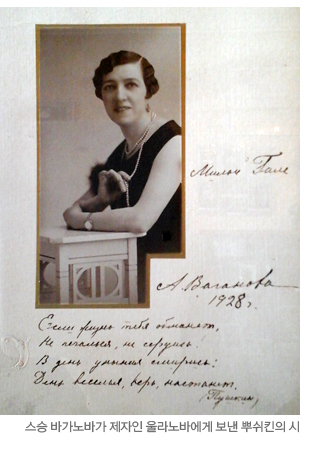 Милой Гале
А. Ваганова
1928 г.
Если жизнь тебя обманет,
Не печалься, не сердись!
В день уныния смирись:
День веселья, верь, настанет.
(Пушкин)
스승 바가노바가 제자인 울라노바에게 보낸 뿌쉬킨의 시